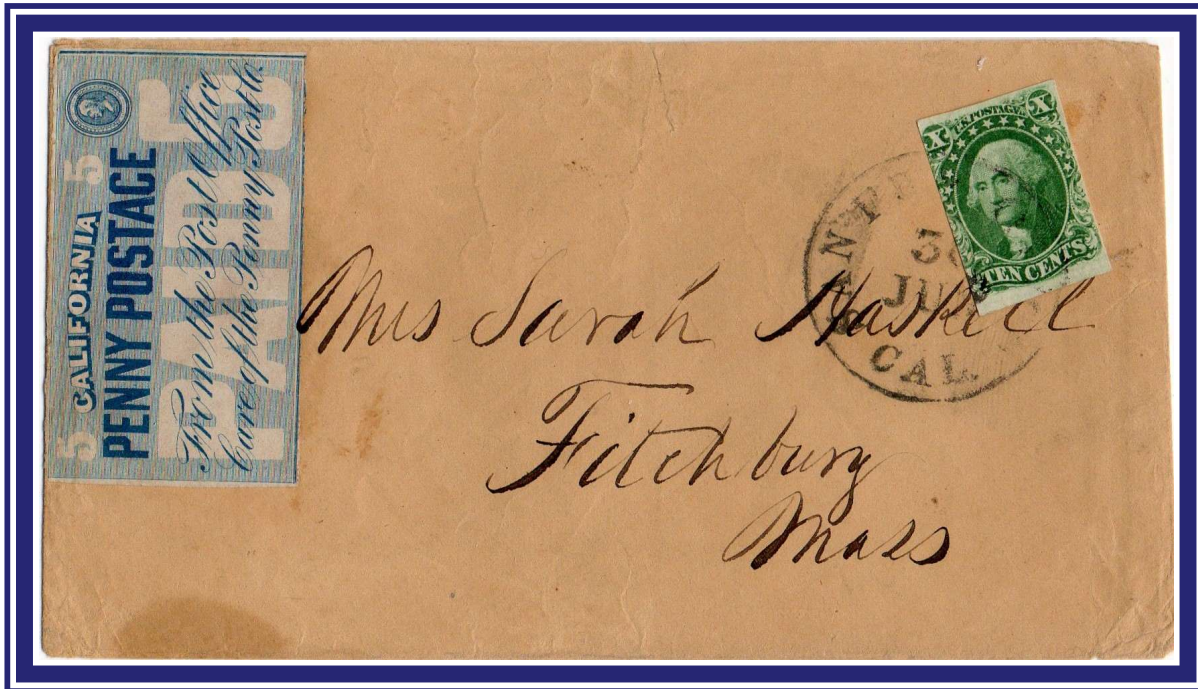 5 CALIFORNIA 5
PENNY POSTAGE
PAID 5
From the Post Office
Care of the Penny Post Co.
X U.S. POSTAGE X
TEN CENTS
30
CAL.
Mrs Sarah Haskell
Fitchburg
Mass